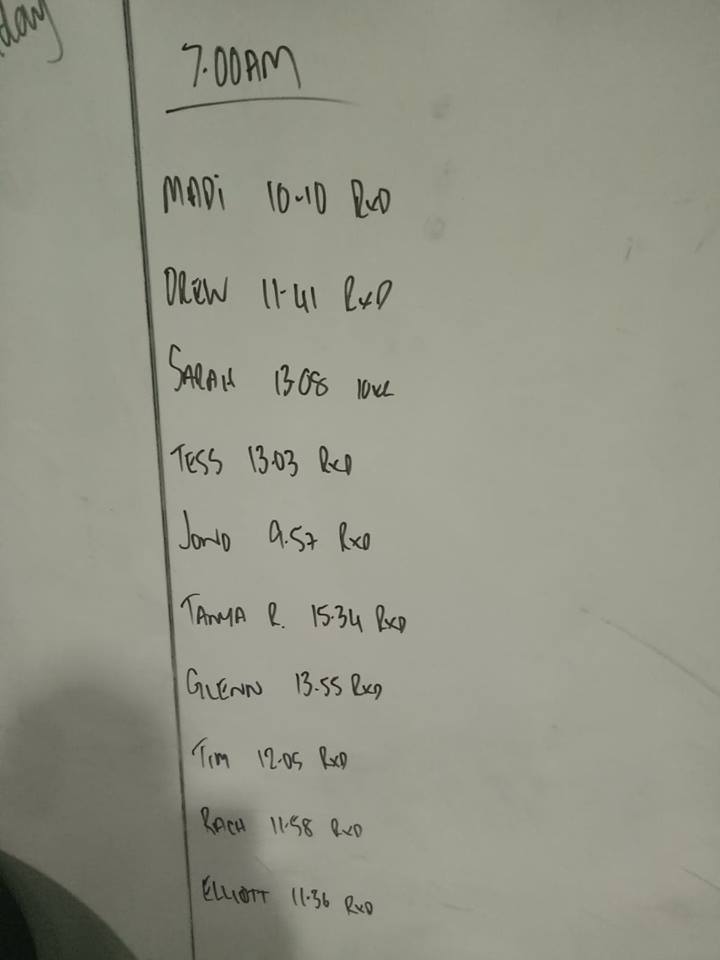 day
7.00AM
MADi 10-10 RxD
DREW 11-41 RxD
SARAH 13.08 10KG
TESS 13.03 RxD
JONO 9.57 RxD
TANYA R. 15.34 RxD
GLENN 13.55 RxD
Tim 12.05 RxD
RACH 11.58 RxD
ELLIOTT 11.36 RxD